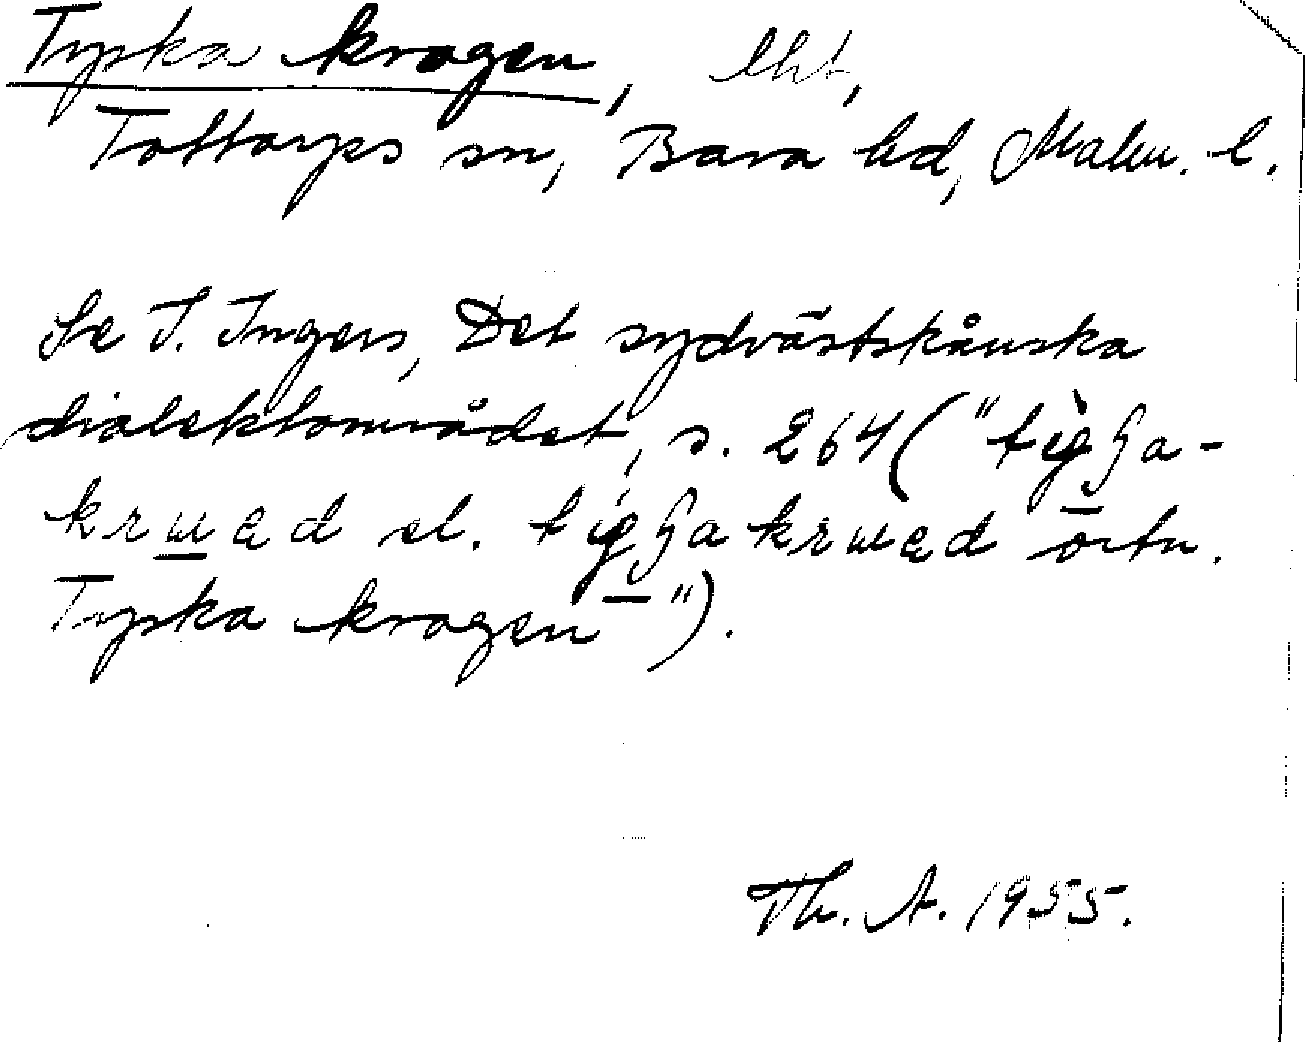 Tyska kragen, lht,
Tottarps sn, Bara hd, Malm. l.
Se I. Ingers, Det sydvästskånska
dialektområdet, s. 264 ("
el. ortn.
Tyska kragen").
Th. A. 1955.